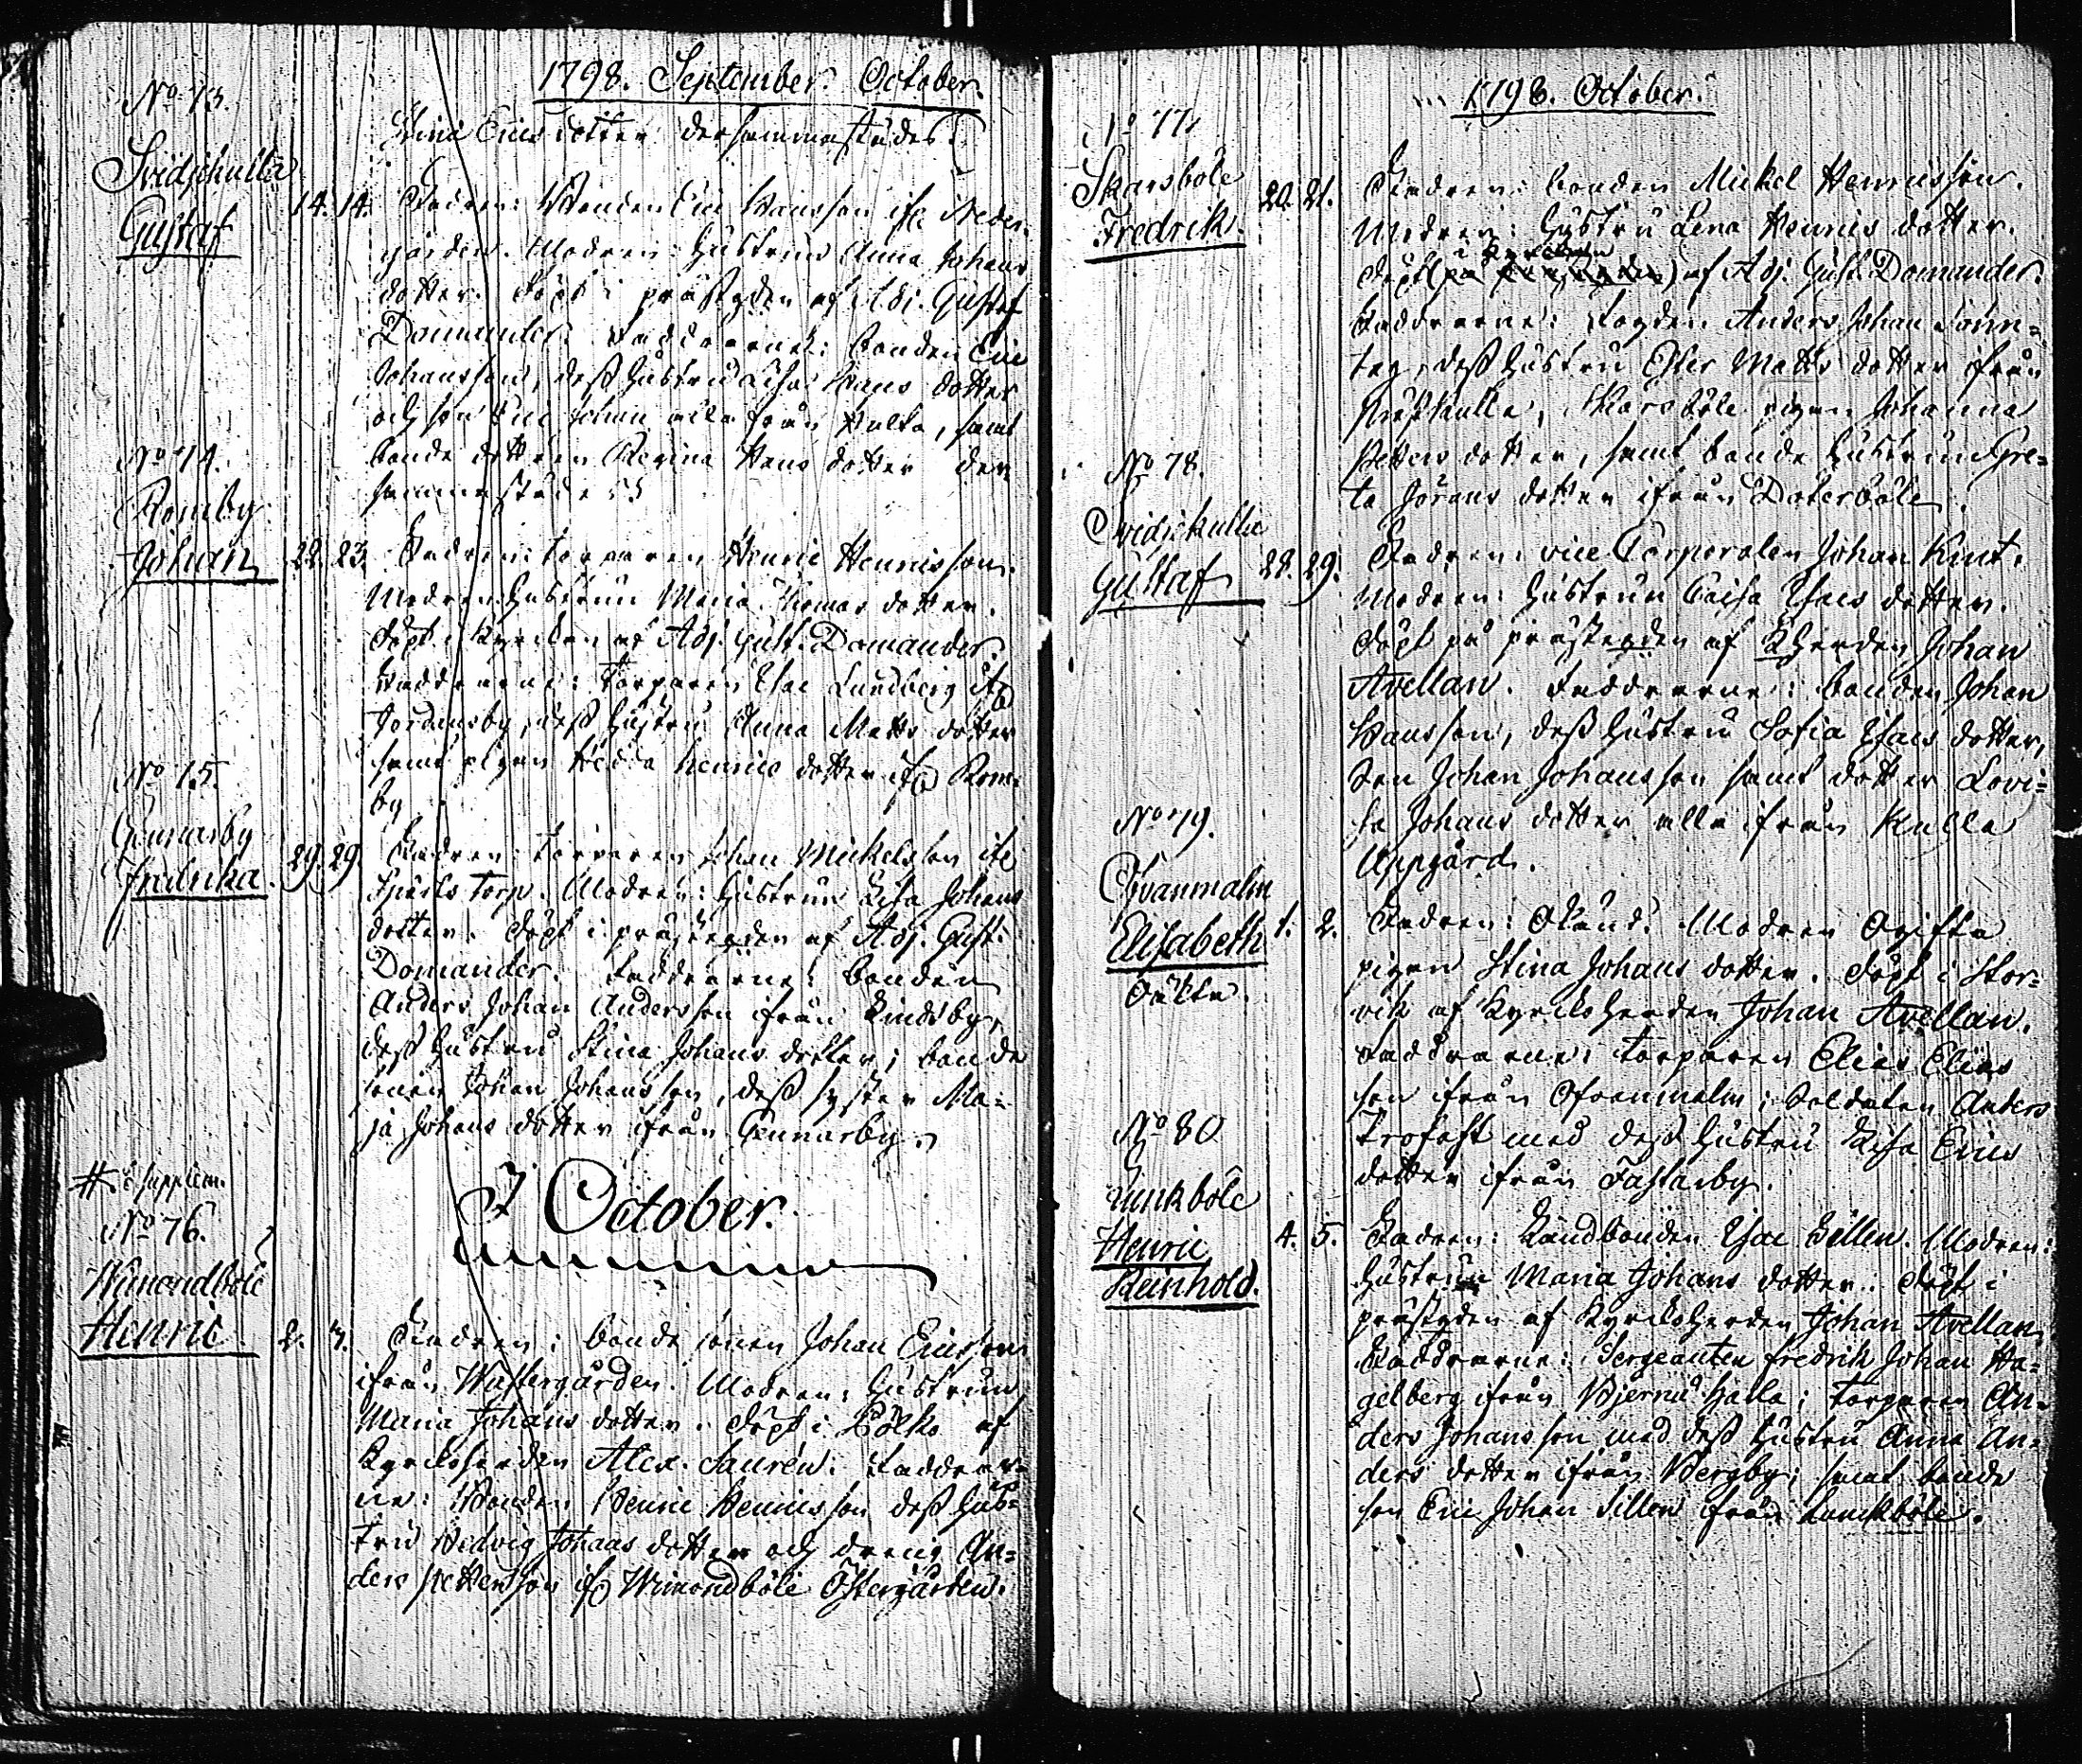 1798. September. October.
Stina Ericsdotter dersammastädes.
No 73.
Svidjekulla
Gustaf
14. 14. Fadren: Bonden Eric Hansson ifr. Neder-
gården. Modren: Hustrun Anna Johans
dotter. Döpt i prästgden af Adj. Gustaf
Domander. Faddrarne: bonden Eric
Johansson, dess hustru Lisa Hans dotter
och son Eric Johan alla från Kulla, samt
bonde dottren Regina Hans dotter der-
sammastädes
No 74.
Romby
Johan
22. 23. Fadren: torparen Henric Henricsson.
Modren: hustrun Maria Thomas dotter.
Döpt i Kyrckan af Adj. Gust. Domander.
Faddrarne: Torparen Isac Lundberg ifr.
Jordansby, dess hustru Anna Matts dotter
samt pigan Hedda Henrics dotter ifr. Rom-
by
No 75.
Gennarby
Fredrika.
29. 29. Fadren: torparen Johan Mickelsson ifr.
Torp. Modren: hustrun Lisa Johans
dotter. Döpt i prästegden af Adj. Gust.
Domander. Faddrarne: bonden
Anders Johan Andersson ifrån Lindsby,
dess hustru Stina Johans dotter; bonde
sonen Johan Johansson, dess syster Ma-
ja Johans dotter ifrån Gennarby.
#. supplem.
I October.
No 76.
Wimondböle
Henric
2. 3. Fadren: bonde sonen Johan Ericsson
ifrån Wästergården. Modren: hustrun
Maria Johans dotter. Döpt i Pölko af
Kyrckoherden Alex. Laurén. Faddrar-
ne: Bonden Henric Henricsson dess hus-
tru Hedvig Johans dotter och dräng An-
ders Pettersson ifr. Wimondböle Östergården.
1798. October.
No 77.
Skarsböle
Fredrik.
20. 21. Fadren: bonden Mickel Henricsson.
Modren: hustru Lena Henrics dotter.
i Kyrckan
Döpt (på prästgården) af Adj. Gust. Domander.
Faddrarne: Fogden Anders Johan Sönn-
tag, dess hustru Ester Matts dotter ifrån
Näsekulla, Skarsböle pigan Johanna
Petters dotter, samt bonde hustrun Gre-
ta Jörans dotter ifrån Dalerböle.
No 78.
Svidjekulla
Gustaf
28. 29. Fadren: vice Corporalen Johan Knut.
Modren: hustrun Caisa Isacs dotter.
Döpt på prästegden af KHerden Johan
Avellan. Faddrarne: bonden Johan
Hansson, dess hustru Sofia Isacs dotter,
Son Johan Johansson samt dotter Lovi-
sa Johans dotter alla ifrån Kulla
Uppgård.
No 79.
Ofvanmalm
Elisabeth
Oäkta.
1. 2. Fadren: Okänd. Modren Ogifta
pigan Stina Johans dotter. Döpt i Stor-
vik af Kyrckoherden Johan Avellan.
Faddrarne: torparen Elias Elias
son ifrån Ofvanmalm; Soldaten Anders
Trofast med dess hustru Lisa Erics
dotter ifrån Fastarby.
No 80
Lunkböle
Henric
Reinhold.
4. 5. Fadren: Landbonden Isac Sillen. Modren:
Hustrun Maria Johans dotter. Döpt i
prästgden af Kyrckoherden Johan Avellan.
Faddrarne: Sergeanten Fredrik Johan Ha-
gelberg ifrån Bjernå Hälla; torparen An-
ders Johansson med dess hustru Anna An-
ders dotter ifrån Bergby; samt bonde
son Eric Johan Sillen från Lunckböle.